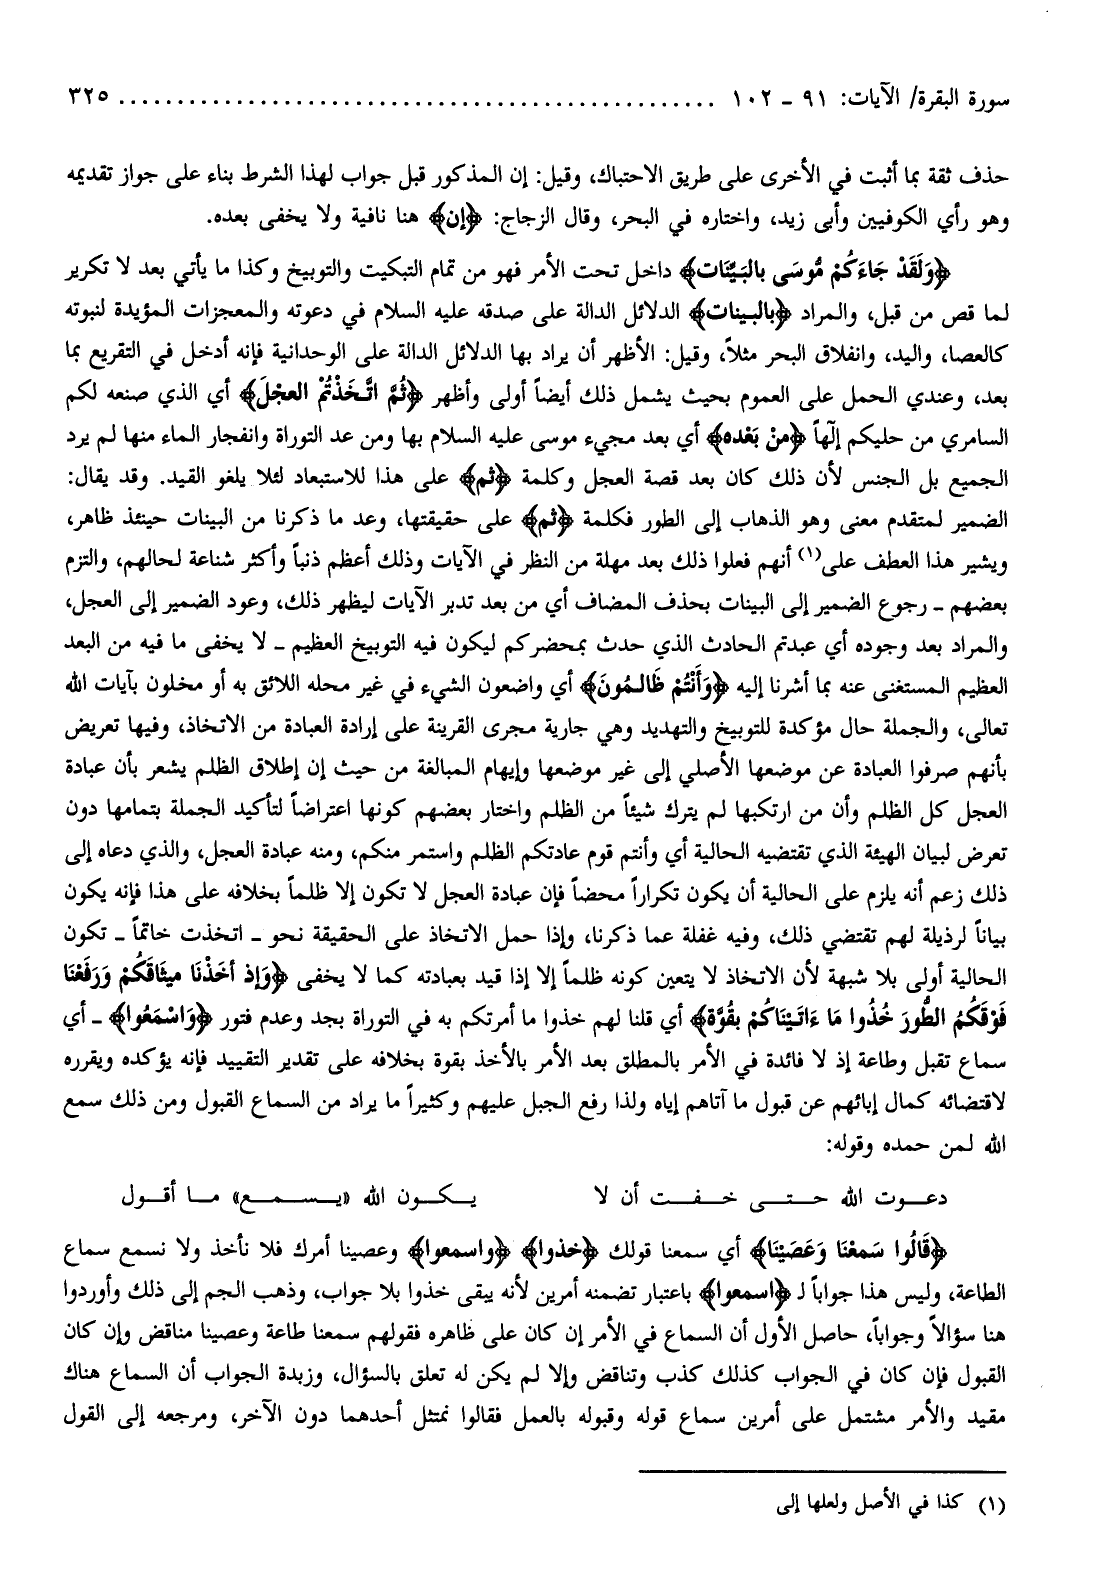 سورة البقرة/ الآيات: ٩١ - ١٠٢ ..................................................... ٣٢٥
حذف ثقة بما أثبت في الأخرى على طريق الاحتباك، وقيل: إن المذكور قبل جواب لهذا الشرط بناء على جواز تقديمه
وهو رأي الكوفيين وأبى زيد، واختاره في البحر، وقال الزجاج: ﴿إن﴾ هنا نافية ولا يخفى بعده.
﴿وَلَقَدْ جَاءَكُمْ مُّوسَى بالبَيِّنَات﴾ داخل تحت الأمر فهو من تمام التبكيت والتوبيخ وكذا ما يأتي بعد لا تكرير
لما قص من قبل، والمراد ﴿بالبينات﴾ الدلائل الدالة على صدقه عليه السلام في دعوته والمعجزات المؤيدة لنبوته
كالعصا، واليد، وانفلاق البحر مثلاً، وقيل: الأظهر أن يراد بها الدلائل الدالة على الوحدانية فإنه أدخل في التقريع بما
بعد، وعندي الحمل على العموم بحيث يشمل ذلك أيضاً أولى وأظهر ﴿ثُمَّ اتَّخَذْتُمْ العجْلَ﴾ أي الذي صنعه لكم
السامري من حليكم إلٓهاً ﴿منْ بَعْده﴾ أي بعد مجيء موسى عليه السلام بها ومن عد التوراة وانفجار الماء منها لم يرد
الجميع بل الجنس لأن ذلك كان بعد قصة العجل وكلمة ﴿ثم﴾ على هذا للاستبعاد لئلا يلغو القيد. وقد يقال:
الضمير لمتقدم معنى وهو الذهاب إلى الطور فكلمة ﴿ثم﴾ على حقيقتها، وعد ما ذكرنا من البينات حينئذ ظاهر،
ويشير هذا العطف على(١) أنهم فعلوا ذلك بعد مهلة من النظر في الآيات وذلك أعظم ذنباً وأكثر شناعة لحالهم، والتزم
بعضهم - رجوع الضمير إلى البينات بحذف المضاف أي من بعد تدبر الآيات ليظهر ذلك، وعود الضمير إلى العجل،
والمراد بعد وجوده أي عبدتم الحادث الذي حدث بمحضركم ليكون فيه التوبيخ العظيم - لا يخفى ما فيه من البعد
العظيم المستغنى عنه بما أشرنا إليه ﴿وَأَنْتُمْ ظَالمُونَ﴾ أي واضعون الشيء في غير محله اللائق به أو مخلون بآيات الله
تعالى، والجملة حال مؤكدة للتوبيخ والتهديد وهي جارية مجرى القرينة على إرادة العبادة من الاتخاذ، وفيها تعريض
بأنهم صرفوا العبادة عن موضعها الأصلي إلى غير موضعها وإيهام المبالغة من حيث إن إطلاق الظلم يشعر بأن عبادة
العجل كل الظلم وأن من ارتكبها لم يترك شيئاً من الظلم واختار بعضهم كونها اعتراضاً لتأكيد الجملة بتمامها دون
تعرض لبيان الهيئة الذي تقتضيه الحالية أي وأنتم قوم عادتكم الظلم واستمر منكم، ومنه عبادة العجل، والذي دعاه إلى
ذلك زعم أنه يلزم على الحالية أن يكون تكراراً محضاً فإن عبادة العجل لا تكون إلا ظلماً بخلافه على هذا فإنه يكون
بياناً لرذيلة لهم تقتضي ذلك، وفيه غفلة عما ذكرنا، وإذا حمل الاتخاذ على الحقيقة نحو - اتخذت خاتماً - تكون
الحالية أولى بلا شبهة لأن الاتخاذ لا يتعين كونه ظلماً إلا إذا قيد بعبادته كما لا يخفى ﴿وَإذ أخَذْنَا ميثَاقَكُمْ وَرَفَعْنَا
فَوْقَكُمُ الطُّورَ خُذُوا مَا ءَاتَيْنَاكُمْ بقُوَّة﴾ أي قلنا لهم خذوا ما أمرتكم به في التوراة بجد وعدم فتور ﴿وَاسْمَعُوا﴾ - أي
سماع تقبل وطاعة إذ لا فائدة في الأمر بالمطلق بعد الأمر بالأخذ بقوة بخلافه على تقدير التقييد فإنه يؤكده ويقرره
لاقتضائه كمال إبائهم عن قبول ما آتاهم إياه ولذا رفع الجبل عليهم وكثيراً ما يراد من السماع القبول ومن ذلك سمع
الله لمن حمده وقوله:
دعوت الله حتى خفت أن لا يكون الله «يسمع» ما أقول
﴿قَالُوا سَمعْنَا وَعَصَيْنَا﴾ أي سمعنا قولك ﴿خذوا﴾ ﴿واسمعوا﴾ وعصينا أمرك فلا نأخذ ولا نسمع سماع
الطاعة، وليس هذا جواباً لـ ﴿اسمعوا﴾ باعتبار تضمنه أمرين لأنه يبقى خذوا بلا جواب، وذهب الجم إلى ذلك وأوردوا
هنا سؤالاً وجواباً، حاصل الأول أن السماع في الأمر إن كان على ظاهره فقولهم سمعنا طاعة وعصينا مناقض وإن كان
القبول فإن كان في الجواب كذلك كذب وتناقض وإلا لم يكن له تعلق بالسؤال، وزبدة الجواب أن السماع هناك
مقيد والأمر مشتمل على أمرين سماع قوله وقبوله بالعمل فقالوا نمتثل أحدهما دون الآخر، ومرجعه إلى القول
(١) كذا في الأصل ولعلها إلى